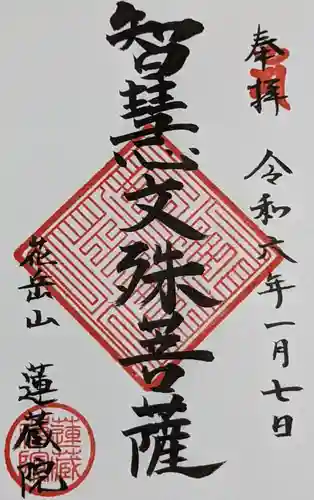 奉拝
令和六年一月七日
智慧文殊菩薩
花岳山
蓮蔵院
蓮蔵
院